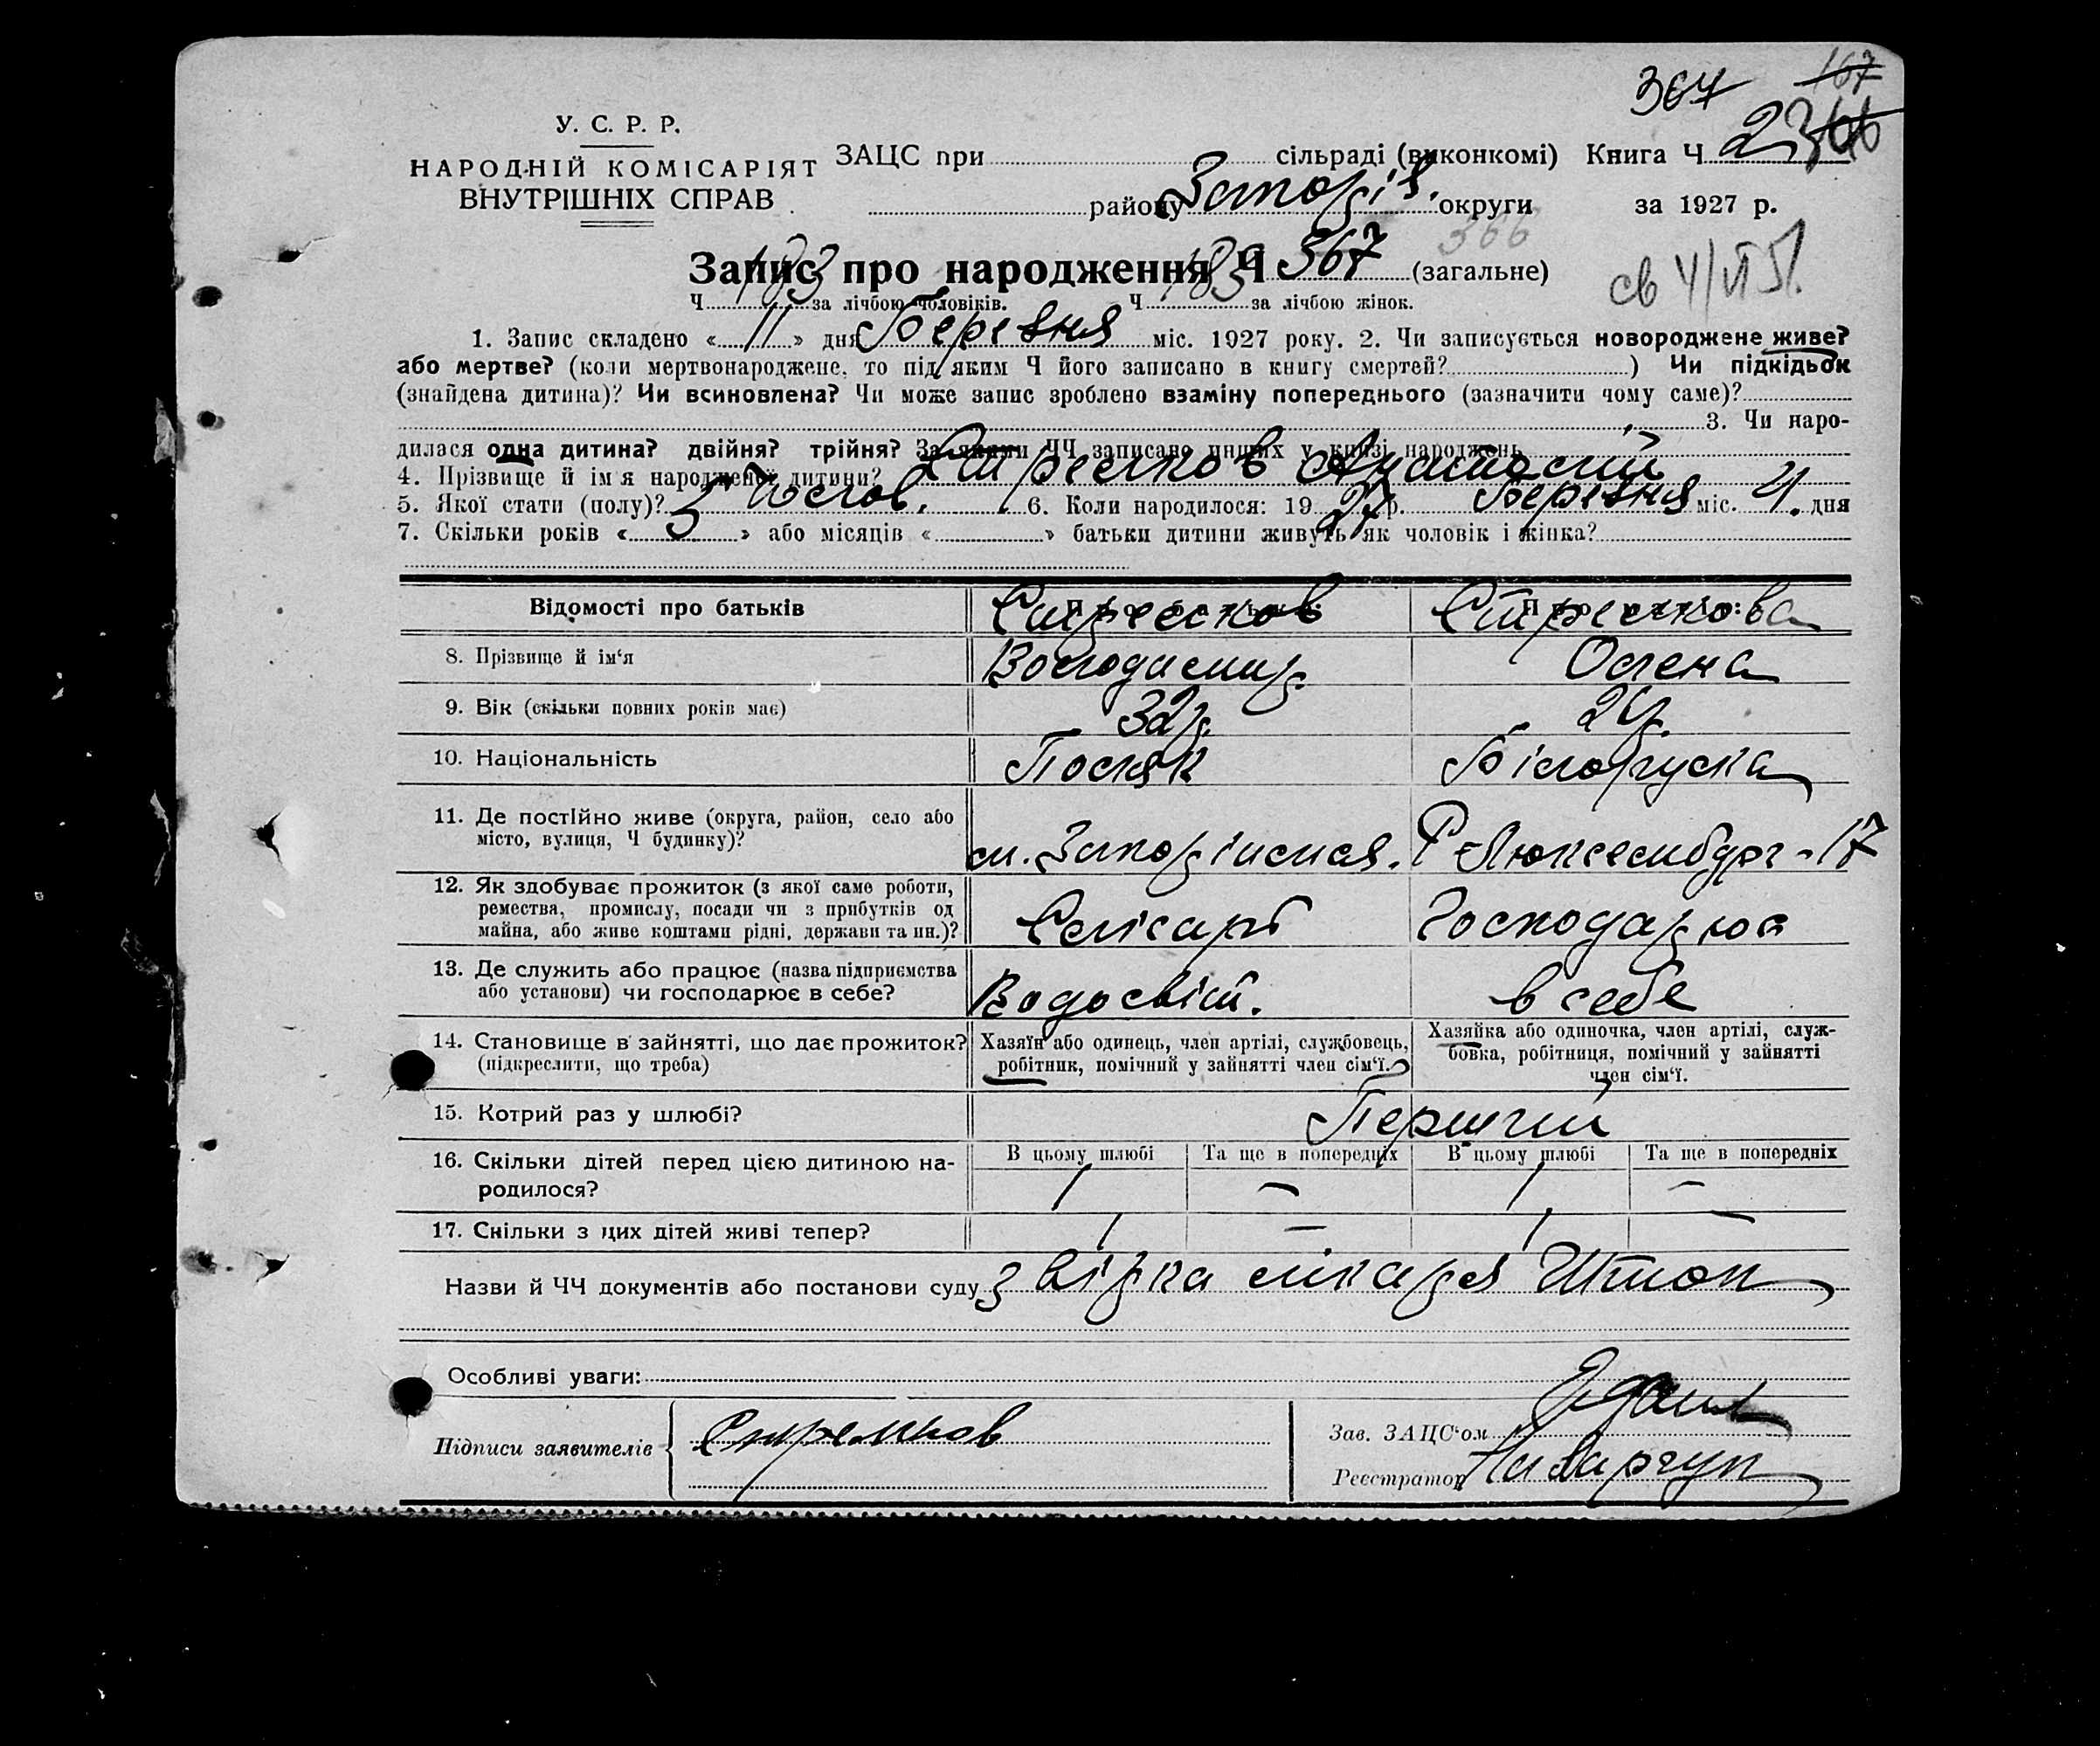 367 167
У. С. Р. Р.
НАРОДНІЙ КОМІСАРІЯТ
ВНУТРІШНІХ СПРАВ
ЗАЦС при сільраді (виконкомі) Книга Ч 2 366
району Запоріз. округи за 1927 р.
366
Запис про народження Ч 367 (загальне)
св 4/VI 51.
Ч 183 за лічбою чоловіків. Ч 183 за лічбою жінок.
1. Запис складено « 11 » дня Березня міс. 1927 року. 2. Чи записується новороджене живе?
або мертве? (коли мертвонароджене, то під яким Ч його записано в книгу смертей? ) Чи підкідьок
(знайдена дитина)? Чи всиновлена? Чи може запис зроблено взаміну попереднього (зазначити чому саме)?
3. Чи наро-
дилася одна дитина? двійня? трійня? За якими ЧЧ записано инших у книзі народжень
4. Прізвище й ім'я народженої дитини? Анатолій
5. Якої стати (полу)? Чолов. 6. Коли народилося: 19 27 р. Березня міс. 4. дня
7. Скільки років « 5 » або місяців « » батьки дитини живуть як чоловік і жінка?
Відомості про батьків Про батька: Про матір:
8. Прізвище й ім'я Володимир Олена
9. Вік (скільки повних років має) 32 р. 24
10. Національність Поляк Білоруска
11. Де постійно живе (округа, район, село або
місто, вулиця, Ч будинку)? м. Запоріжжя. Р-Люксембург-17
12. Як здобуває прожиток (з якої саме роботи,
ремества, промислу, посади чи з прибутків од
майна, або живе коштами рідні, держави та ин.)? Слісарь Господарює
13. Де служить або працює (назва підприємства
або установи) чи господарює в себе? Водосвіт. в себе
14. Становище в занятті, що дає прожиток?
(підкреслити, що треба)
Хазяїн або одинець, член артілі, службовець,
робітник, помічний у зайнятті член сім'ї.
Хазяйка або одиночка, член артілі, служ-
бовка, робітниця, помічний у зайнятті
член сім'ї.
15. Котрий раз у шлюбі? Перший
16. Скільки дітей перед цією дитиною на-
родилося?
В цьому шлюбі Та ще в попередніх В цьому шлюбі Та ще в попередніх
1 – 1 –
17. Скільки з цих дітей живі тепер? 1 – 1 –
Назви й ЧЧ документів або постанови суду з вірка лікаря
Особливі уваги:
Підписи заявителів
Зав. ЗАЦС'ом
Реєстратор